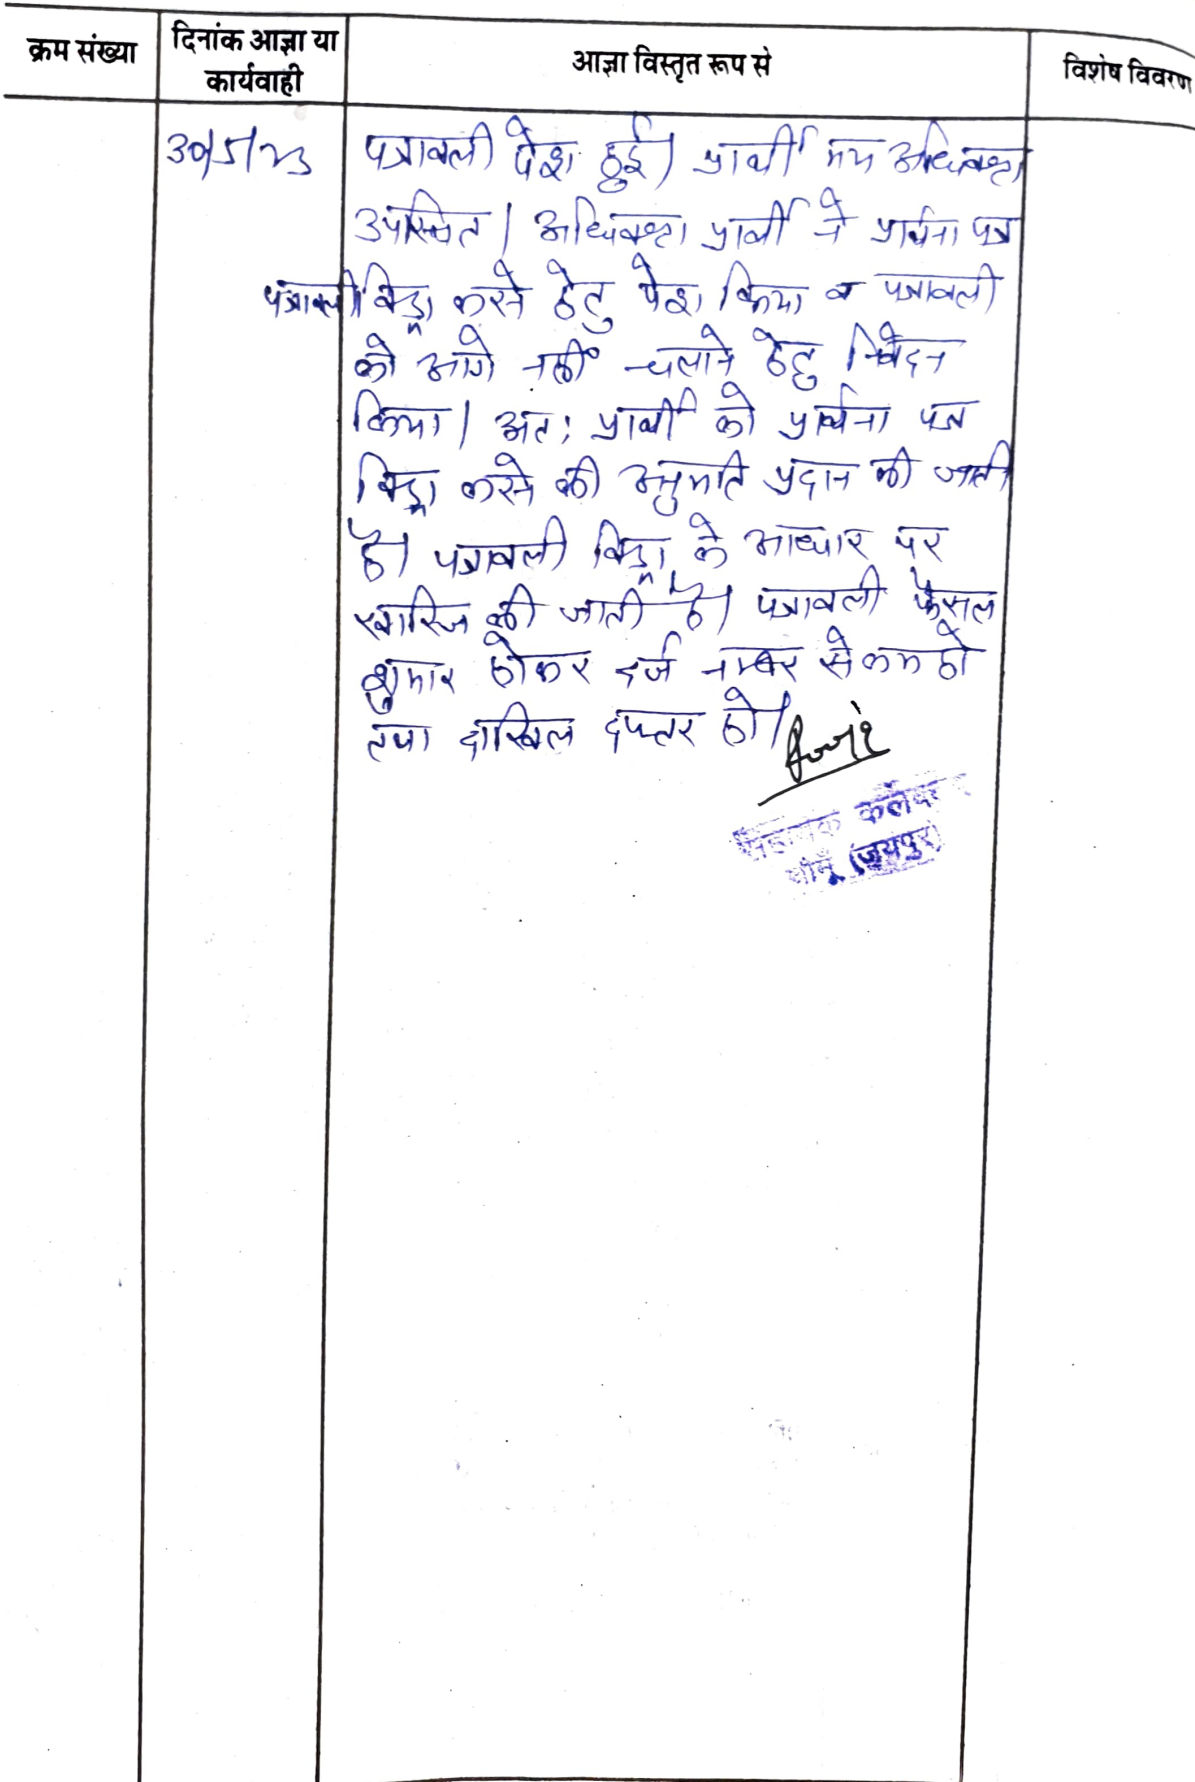 क्रम संख्या
दिनांक आज्ञा या
कार्यवाही
आज्ञा विस्तृत रूप से
विशेष विवरण
30/5/23
पत्रावली पेश हुई। प्रार्थी मय अधिवक्ता
उपस्थित। अधिवक्ता प्रार्थी ने प्रार्थना पत्र
पत्रावली विड्रा करने हेतु पेश किया व पत्रावली
को आगे नहीं चलाने हेतु निवेदन
किया। अतः प्रार्थी को प्रार्थना पत्र
विड्रा करने की अनुमति प्रदान की जाती
है। पत्रावली विड्रा के आधार पर
खारिज की जाती है। पत्रावली फैसल
शुमार होकर दर्ज नम्बर से कम हो
तथा दाखिल दफ्तर हो।
सहायक कलेक्टर
चौमूं (जयपुर)